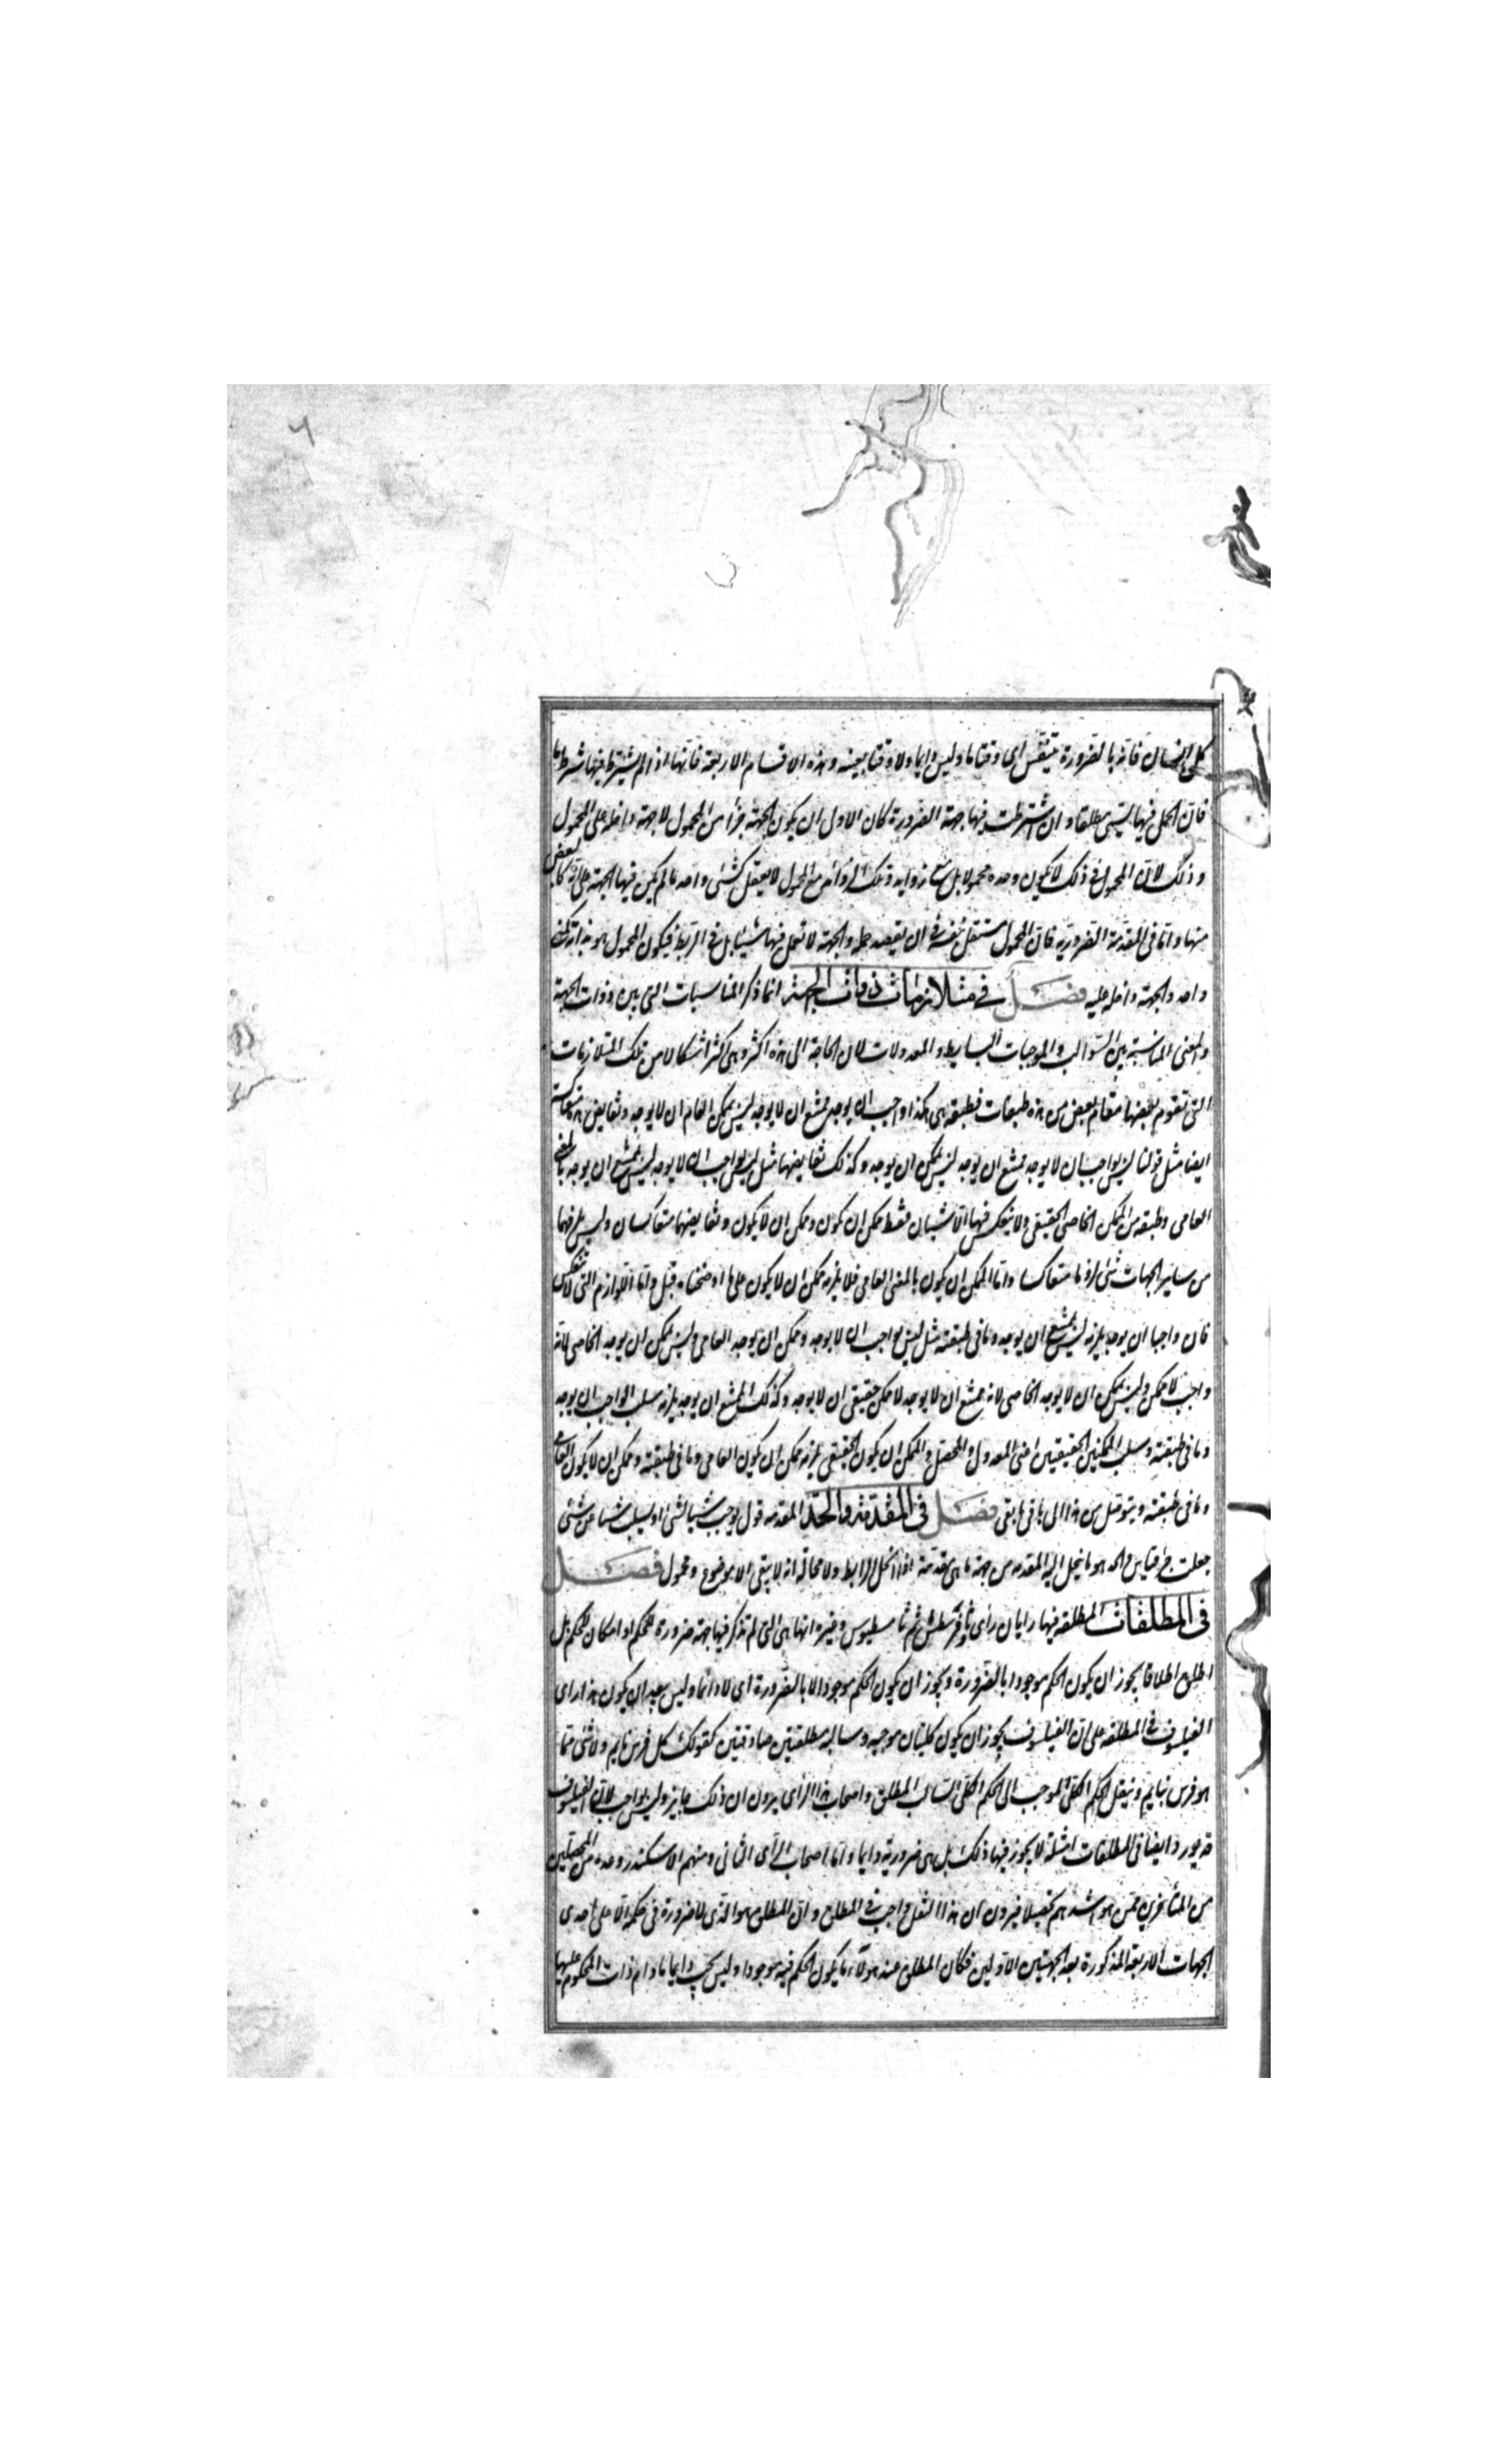 ٦
كل انسان فانه بالضرورة يتنفس اى وقتا ما وليس دايما ولا وقتا بعينه وهذه الاقسام الاربعة فانها اذا لم يشترط فيها شرط ما
فان الحمل فيها يسمى مطلقا وان اشترطت فيها جهة الضرورة كان الاول ان يكون الجهة جزأ من المحمول لا جهة داخلة على المحمول
وذلك لان المحمول فى ذلك لا يكون وحده محمولا بل مع زوايد وتلك الزوائد مع المحمول لا يعقل كشئ واحد ما لم يكن فيها الجهة على انه كا بعض
منها واما فى المقدمة الضرورية فان المحمول مستقل بنفسه فى ان يقصد حمله والجهة لا تعمل فيها شيئا بل فى الربط فيكون المحمول هو بذاته كمعنى
واحد والجهة داخله عليه فصل فى متلازمات ذوات الجهة انما ذكر المناسبات التى بين ذوات الجهة
والمعنى المناسبة بين السوالب والموجبات البسايط والمعدولات لان الحاجة الى هذه اكثر وهى اكثر اشكالا من تلك المتلازمات
التى تقوم بعضها مقام بعض من هذه طبقات فطبقه هى هكذا واجب ان يوجد ممتنع ان لا يوجد ليس بممكن العام ان لا يوجد ونقايض هذه متعاكسة
ايضا مثل قولنا ليس بواجب ان لا يوجد ممتنع ان يوجد ليس بممكن ان يوجد وكذلك نقايضها مثل ليس بواجب ان لا يوجد ليس بممتنع ان يوجد بالمعنى
العامى وطبقه من الممكن الخاصى الحقيقى ولا ينعكس فيها الا شيئان فقط ممكن ان يكون وممكن ان لا يكون ونقايضهما متعاكسان وليس يلزمهما
من ساير الجهات شئ لزوما متعاكسا واما الممكن ان يكون بالمعنى العامى فلا يلزمه ممكن ان لا يكون على ما اوضحناه قبل واما اللوازم التى لا تنعكس
فان واجبا ان يوجد يلزمه ليس بممتنع ان يوجد وما فى طبقته مثل ليس بواجب ان لا يوجد وممكن ان يوجد العامى وليس بممكن ان يوجد الخاصى لانه
واجب لا ممكن وليس بممكن ان لا يوجد الخاصى لانه ممتنع ان لا يوجد لا ممكن حقيقى ان لا يوجد وكذلك الممتنع ان يوجد يلزمه سلب الواجب ان يوجد
وما فى طبقته وسلب الممكنين الحقيقيين اعنى المعدول والمحصل والممكن ان يكون الحقيقى يلزمه ممكن ان يكون العامى وما فى طبقته وممكن ان لا يكون العامى
وما فى طبقته ويتوصل من هذا الى ما بقى فصل فى المقدمة والحد المقدمه قول يوجب شيئا لشئ او يسلب شيئا عن شئ
جعلت جزء قياس والحد هو ما ينحل اليه المقدمه من جهة ما هى مقدمة اذا انحل الرابط ولا محالة انه لا يبقى الا موضوع ومحمول فصل
فى المطلقات المطلقه فيها رايان راى ثاوفرسطس ثم ثامسطيوس وغيره انها هى التى لم تذكر فيها جهة ضرورة للحكم او امكان للحكم بل
اطلق اطلاقا يجوز ان يكون الحكم موجودا بالضرورة ويجوز ان يكون الحكم موجودا لا بالضرورة اى لا دائما وليس ببعيد ان يكون هذا راى
الفيلسوف فى المطلقه على ان الفيلسوف يجوز ان يكون كليتان موجبه وسالبه مطلقتين صادقتين كقولك كل فرس نايم ولا شئ مما
هو فرس بنايم وينقل الحكم الكلى الموجب الى الحكم الكلى السالب المطلق واصحاب هذا الراى يرون ان ذلك جايز وليس بواجب لان الفيلسوف
قد يورد ايضا فى المطلقات امثلة لا يجوز فيها ذلك بل هى ضرورية دايما واما اصحاب الراى الثانى ومنهم الاسكندر وعده من المحصلين
من المتأخرين ممن هو اشدهم تحصيلا فيرون ان هذا النقل واجب فى المطلق وان المطلق هو الذى لا ضرورة فى حكمه الا على احدى
الجهات الاربعة المذكورة بعد الجهتين الاولين فكان المطلق عند هولاء ما يكون الحكم فيه موجودا وليس يجب دايما ما دام ذات المحكوم عليها